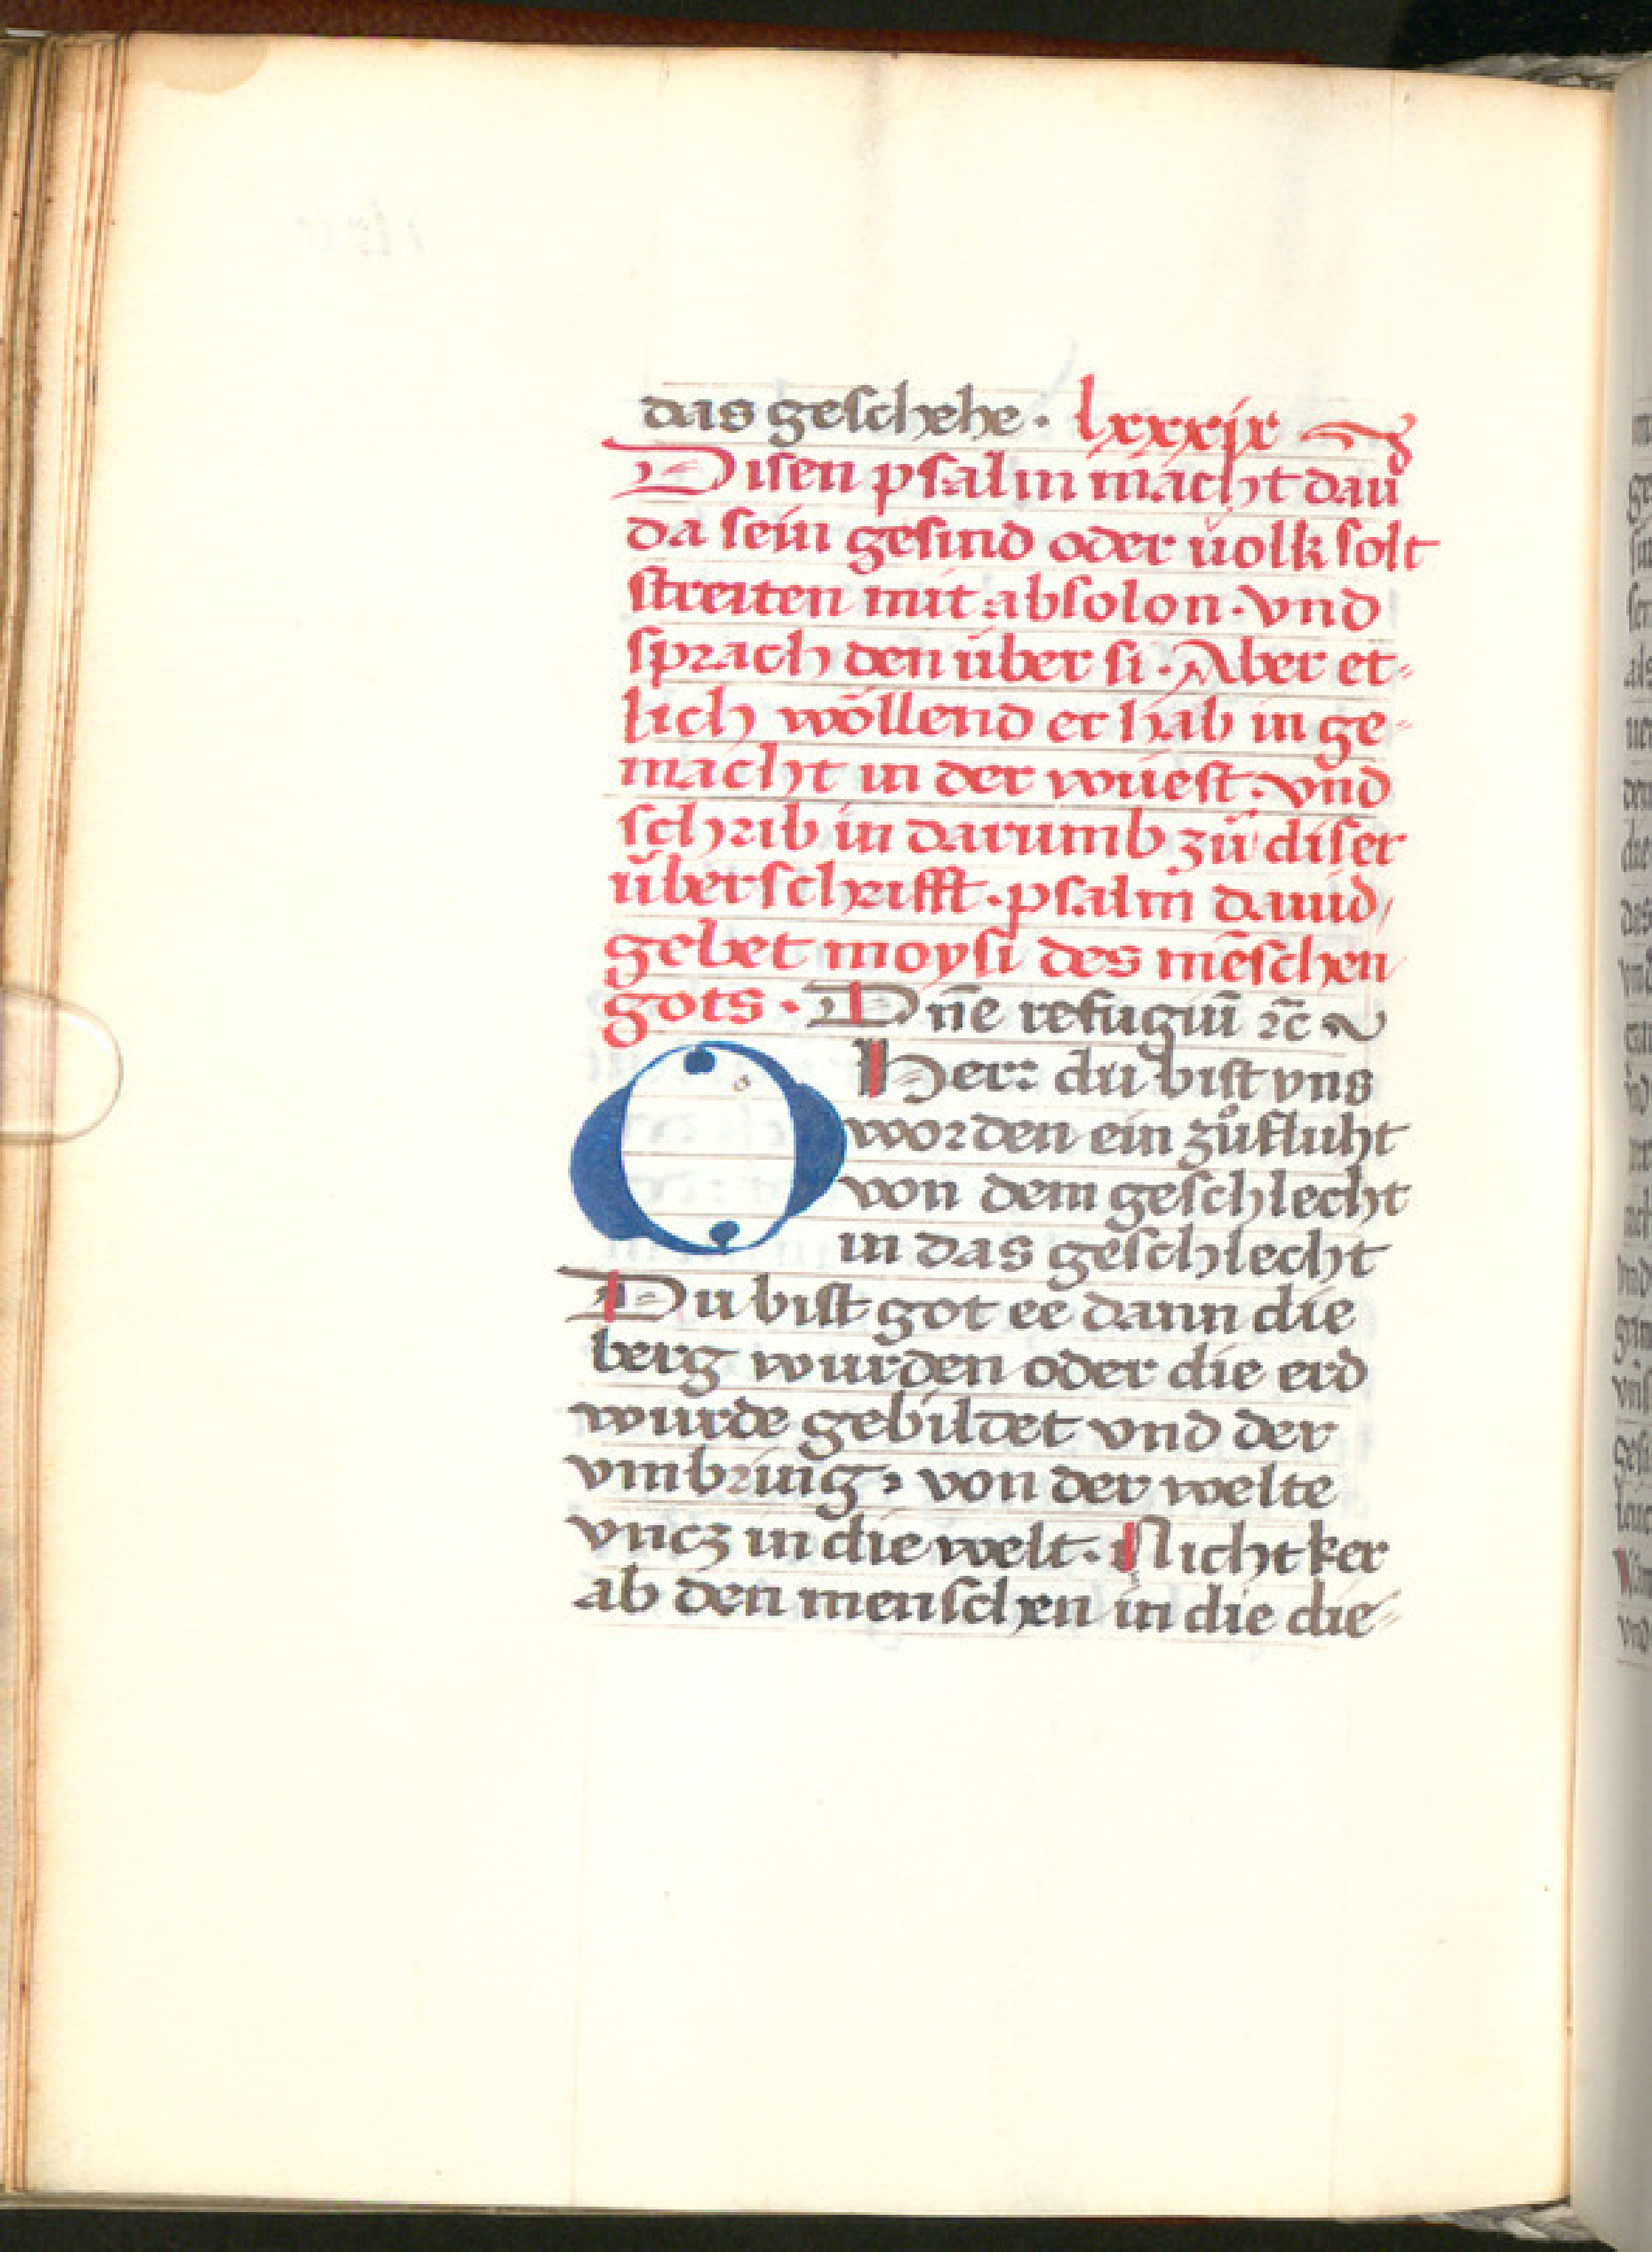 das geschehe · lxxxix
Disen psalm macht daui
da sein gesind oder uolk solt
streiten mit absolon · vnd
sprach den über si · Aber et-
lich wöllend er hab in ge-
macht in der wuest · vnd
schrib in darumb zů diser
überschrifft · psalm dauid /
gebet moysi des mēschen
gots · Dn̄e refugiū ⁊c̄
O Herr du bist vns
worden ein zůfluht
von dem geschlecht
in das geschlecht
Du bist got ee dann die
berg wurden oder die erd
wurde gebildet vnd der
vmbring, von der welte
vncz in die welt · Nicht ker
ab den menschen in die die-